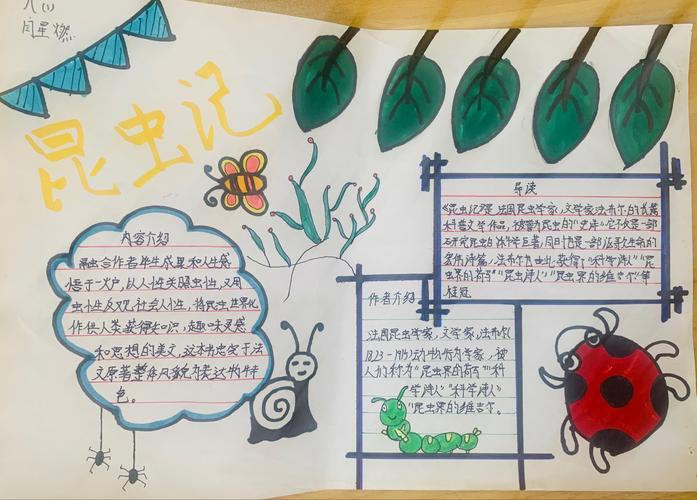 八(1)
闫星燃
昆虫记
内容介绍
融合作者毕生成果和人生感
悟于一炉,以人性关照虫性,又用
虫性反观社会人生,将昆虫世界化
作供人类获得知识,趣味美感
和思想的美文,这本书忠实于法
文原著整体风貌为表达的特
色。
导读
《昆虫记》是法国昆虫学家,文学家法布尔的
科普文学作品,被誉为昆虫的"史诗"它不仅是一部
研究昆虫的科学巨著,同时也是一部讴歌生命的
宏伟诗篇,法布尔也由此获得了"科学诗人""昆
虫界的荷马""昆虫诗人""昆虫界的维吉尔"等
桂冠
作者介绍
法国昆虫学家,文学家,法布尔
1823-1915动物行为学家,被
人们称为"昆虫界的荷马""科
学诗人""科学诗人"
"昆虫界的维吉尔。